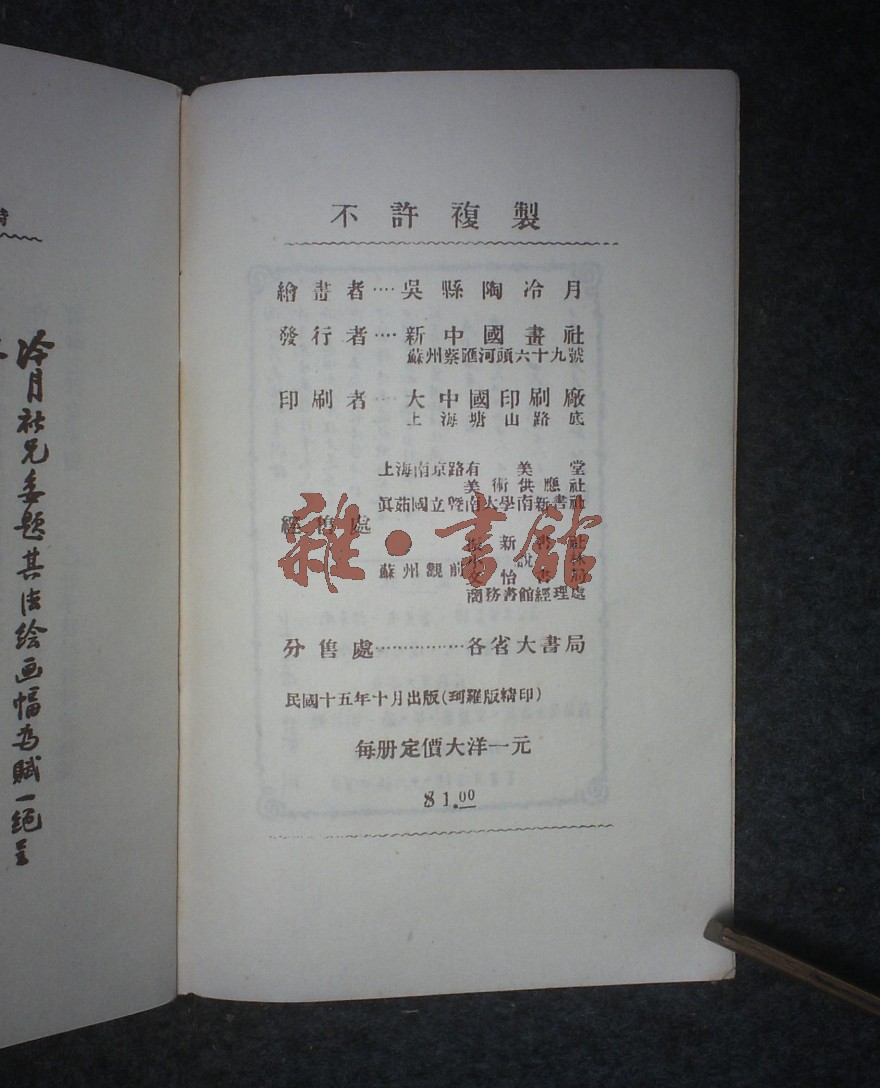 不許複製
繪畫者····吳縣陶冷月
發行者····新中國畫社
蘇州蔡匯河頭六十九號
印刷者··大中國印刷廠
上海塘山路底
上海南京路有美堂
美術供應社
眞茹國立暨南大學南新書社
經售處
振新書社
小說林
蘇州觀前文怡書局
商務書館經理處
分售處················各省大書局
民國十五年十月出版(珂羅版精印)
每册定價大洋一元
$1.00
雜·書館
冷月社兄委題其法绘画幅為賦一絕呈